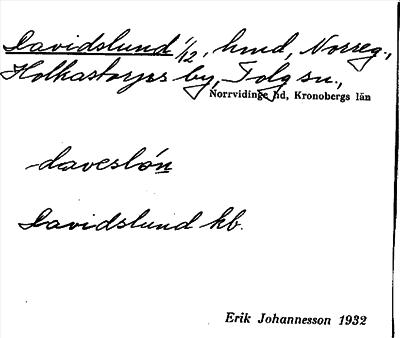 Davidslund 1/12, hmd, Norreg.,
Holkastorps by, Tolg sn.,
Norrvidinge hd, Kronobergs län
daveslón
Davidslund kb.
Erik Johannesson 1932